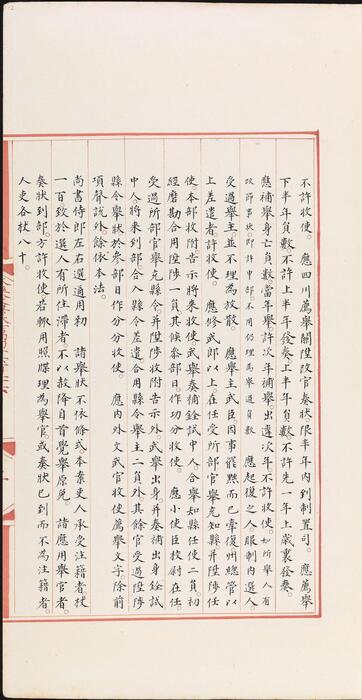 不許收使。應四川薦舉關陞改官奏狀限半年內到制置司。應薦舉
下半年員數不許上半年發奏上半年員數不許先一年上歲裏發奏。
應補舉身亡員數當年舉許次年補舉出違次年不許收使。如所舉人有
改節事狀。即許申部。不用仍理為舉過員數應起復之人服制內選人
受過舉主並不理為放散。應舉主武臣因事罷黜而已牽復州總管以
上差遣者許收使。應修武郎以上。在任受所部官舉充知縣并陞陟任
使本部收附告示將來收使。武舉奏補銓試中人合舉知縣任使二員。初
經磨勘合用陞陟一員。其候參部日。作功分收使。應小使臣校尉在任
受過所部官舉充縣令。并陞陟收附告示外。武舉出身。并奏補出身銓試
中人。將來到部合入縣令差遣。合用縣令舉主二員外。其餘官受過陞陟
縣令舉狀於參部日作分分收使。應內外文武官收使薦舉文字。除前
項聲說外。餘依本法。
尚書侍郎左右選通用初諸舉狀不依條式。本案吏人承受注籍者。杖
一百。致於選人有所住滯者。不以赦降自首覺舉原免。諸應用舉官者。
奏狀到部。方許收使。若輒用照牒理為舉官。或奏狀已到而不為注籍者。
人吏各杖八十。